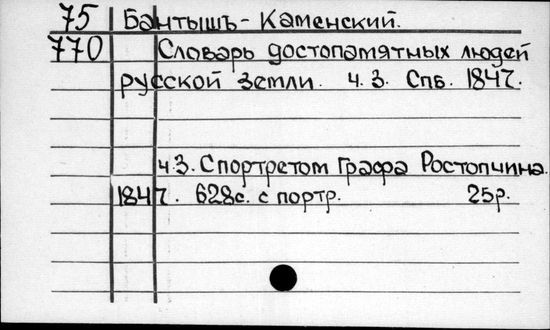 75 Бантышъ-Каменский.
770 Словарь достопамятных людей
русской земли. ч.3. Спб. 1847.
ч.3. С портретом Графа Ростопчина.
1847. 628с. с портр. 25р.